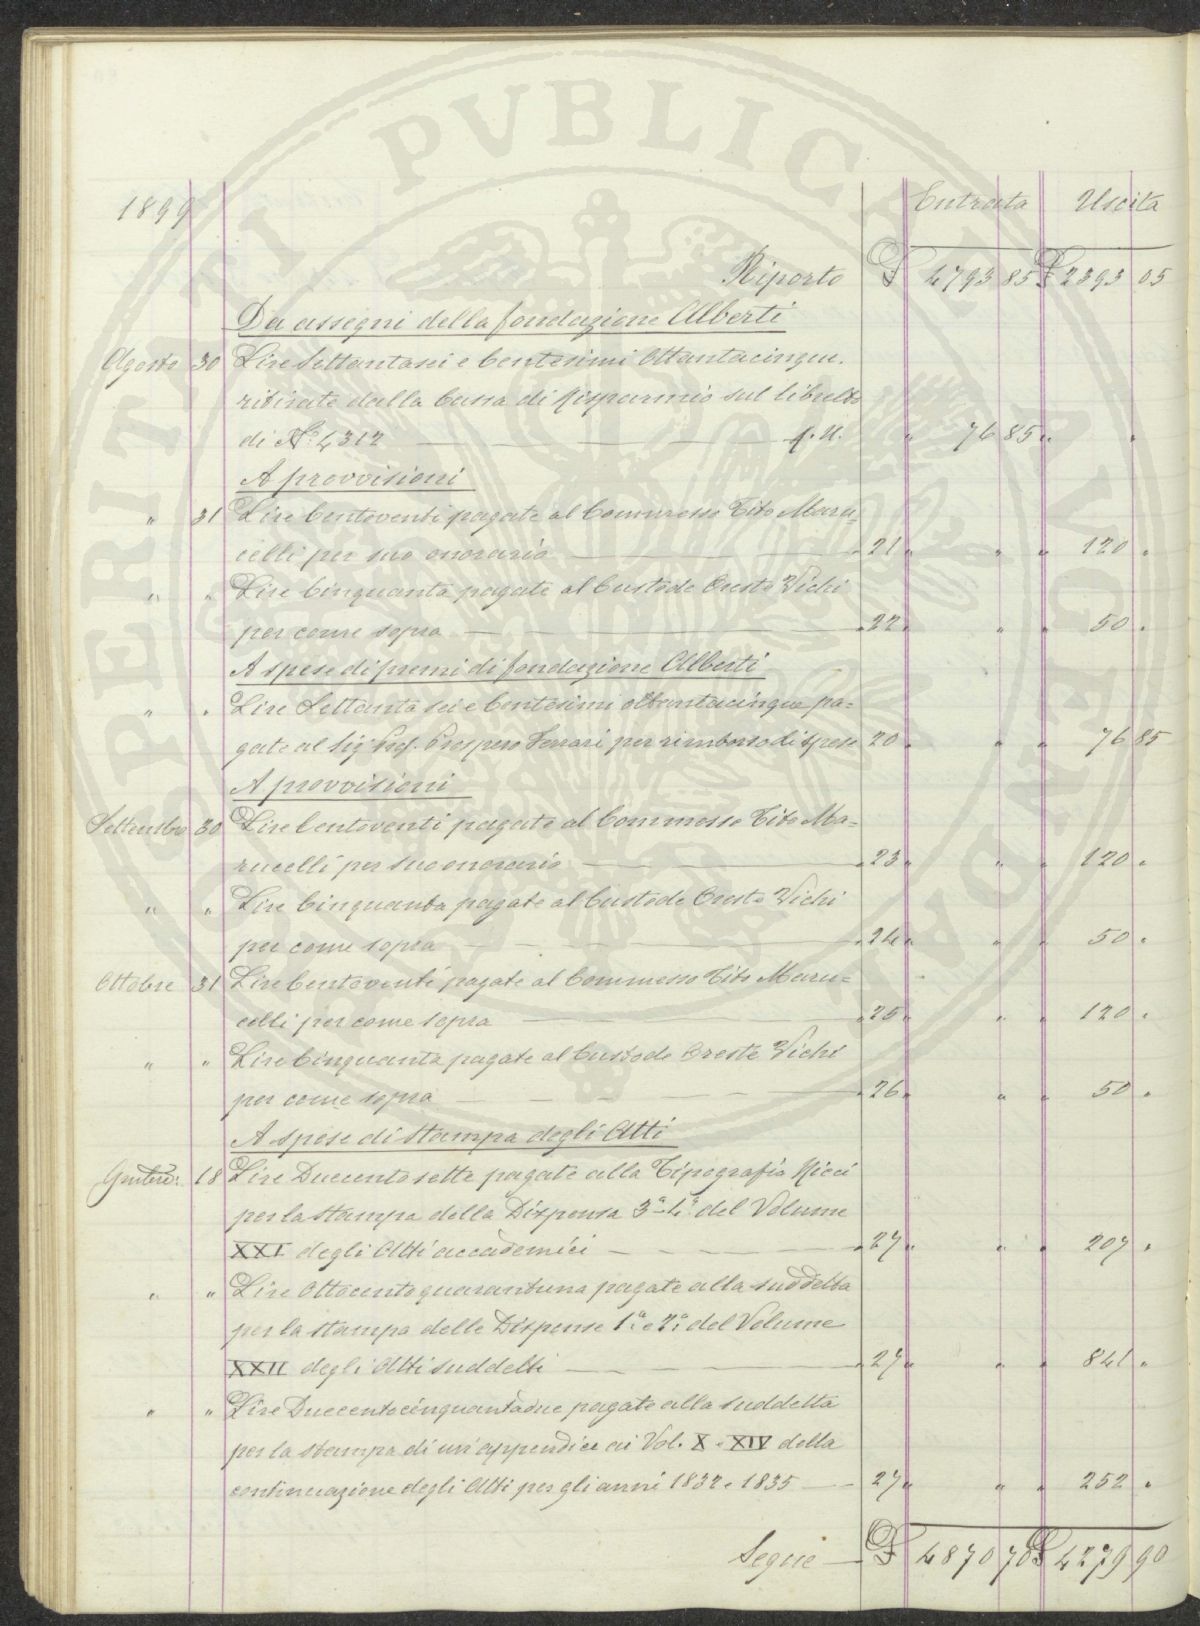 1899 Entrata Uscita
Riporto £ 4793 85 £ 2393 05
Da assegni della fondazione Alberti
Agosto 30 Lire Settantasei e Centesimi Ottantacinque.
ritirate dalla Cassa di Risparmio sul libretto
di N.º 4312 — — — " 76 85 " "
A provvisioni
" 31 Lire Centoventi pagate al Commesso Tito Maru=
celli per suo onorario — — " 21 " " " 120 "
" " Lire Cinquanta pagate al Custode Oreste Vichi
per come sopra — — " 22 " " " 50 "
A spese di premi di fondazione Alberti
" " Lire Settanta sei e Centesimi ottantacinque pa=
gate al Sig.r Prof. Prospero Ferrari per rimborso di spese 20 " " " 76 85
A provvisioni
Settembre 30 Lire Centoventi pagate al Commesso Tito Ma=
rucelli per suo onorario — — " 23 " " " 120 "
" " Lire Cinquanta pagate al Custode Oreste Vichi
per come sopra — — " 24 " " " 50 "
Ottobre 31 Lire Centoventi pagate al Commesso Tito Maru=
celli per come sopra — — " 25 " " " 120 "
" " Lire Cinquanta pagate al Custode Oreste Vichi
per come sopra — — — " 26 " " " 50 "
A spese di stampa degli Atti
18 Lire Duecentosette pagate alla Tipografia Ricci
per la stampa della Dispensa 3ª-4ª del Volume
XXI degli Atti accademici — — " 27 " " " 207 "
" " Lire Ottocentoquarantuna pagate alla suddetta
per la stampa delle Dispense 1ª e 2ª del Volume
XXII degli Atti suddetti — — " 27 " " " 841 "
" " Lire Duecentocinquantadue pagate alla suddetta
per la stampa di un'appendice ai Vol. X e XIV della
continuazione degli Atti per gli anni 1832 e 1835 — 27 " " " 252 "
Segue — £ 4870 70 £ 4279 90
PERITATI PVBLICAE AVGENDAE